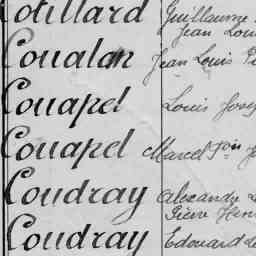 Cotillard Guillaume
Jean Louis
Coualan Jean Louis
Couapel Louis
Couapel Marcel Jph
Coudray Alexandre
Pierre Henri
Coudray Edouard